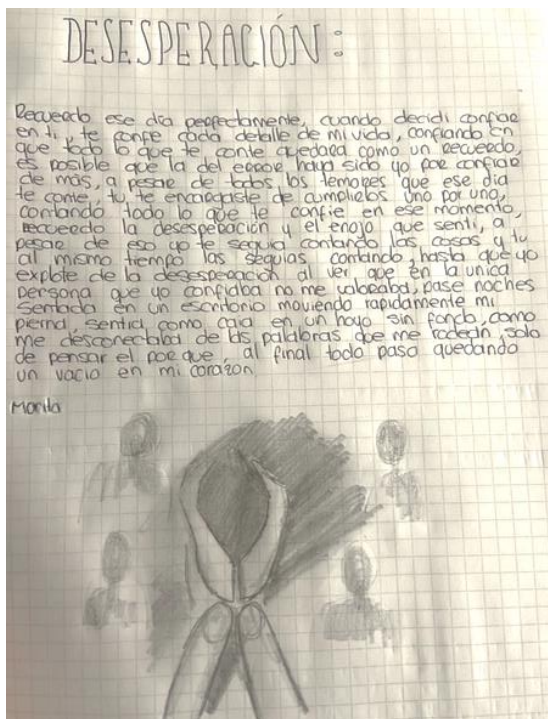 DESESPERACIÓN:
Recuerdo ese dia perfectamente, cuando decidi confiar
en ti, te confie cada detalle de mi vida, confiando en
que todo lo que te conte quedara como un recuerdo,
es posible que la del error haya sido yo por confiar
de más, a pesar de todos los temores que ese dia
te conte, tu te encargaste de cumplirlos uno por uno,
contando todo lo que te confie en ese momento,
recuerdo la desesperación y el enojo que senti, a
pesar de eso yo te seguia contando las cosas y tu
al mismo tiempo las seguias contando, hasta que yo
explote de la desesperación al ver que en la unica
persona que yo confiaba no me valoraba, pase noches
sentada en un escritorio moviendo rapidamente mi
pierna, sentia como caia en un hoyo sin fondo, como
me desconectaba de las palabras que me rodean, solo
de pensar el por que, al final todo paso quedando
un vacio en mi corazon